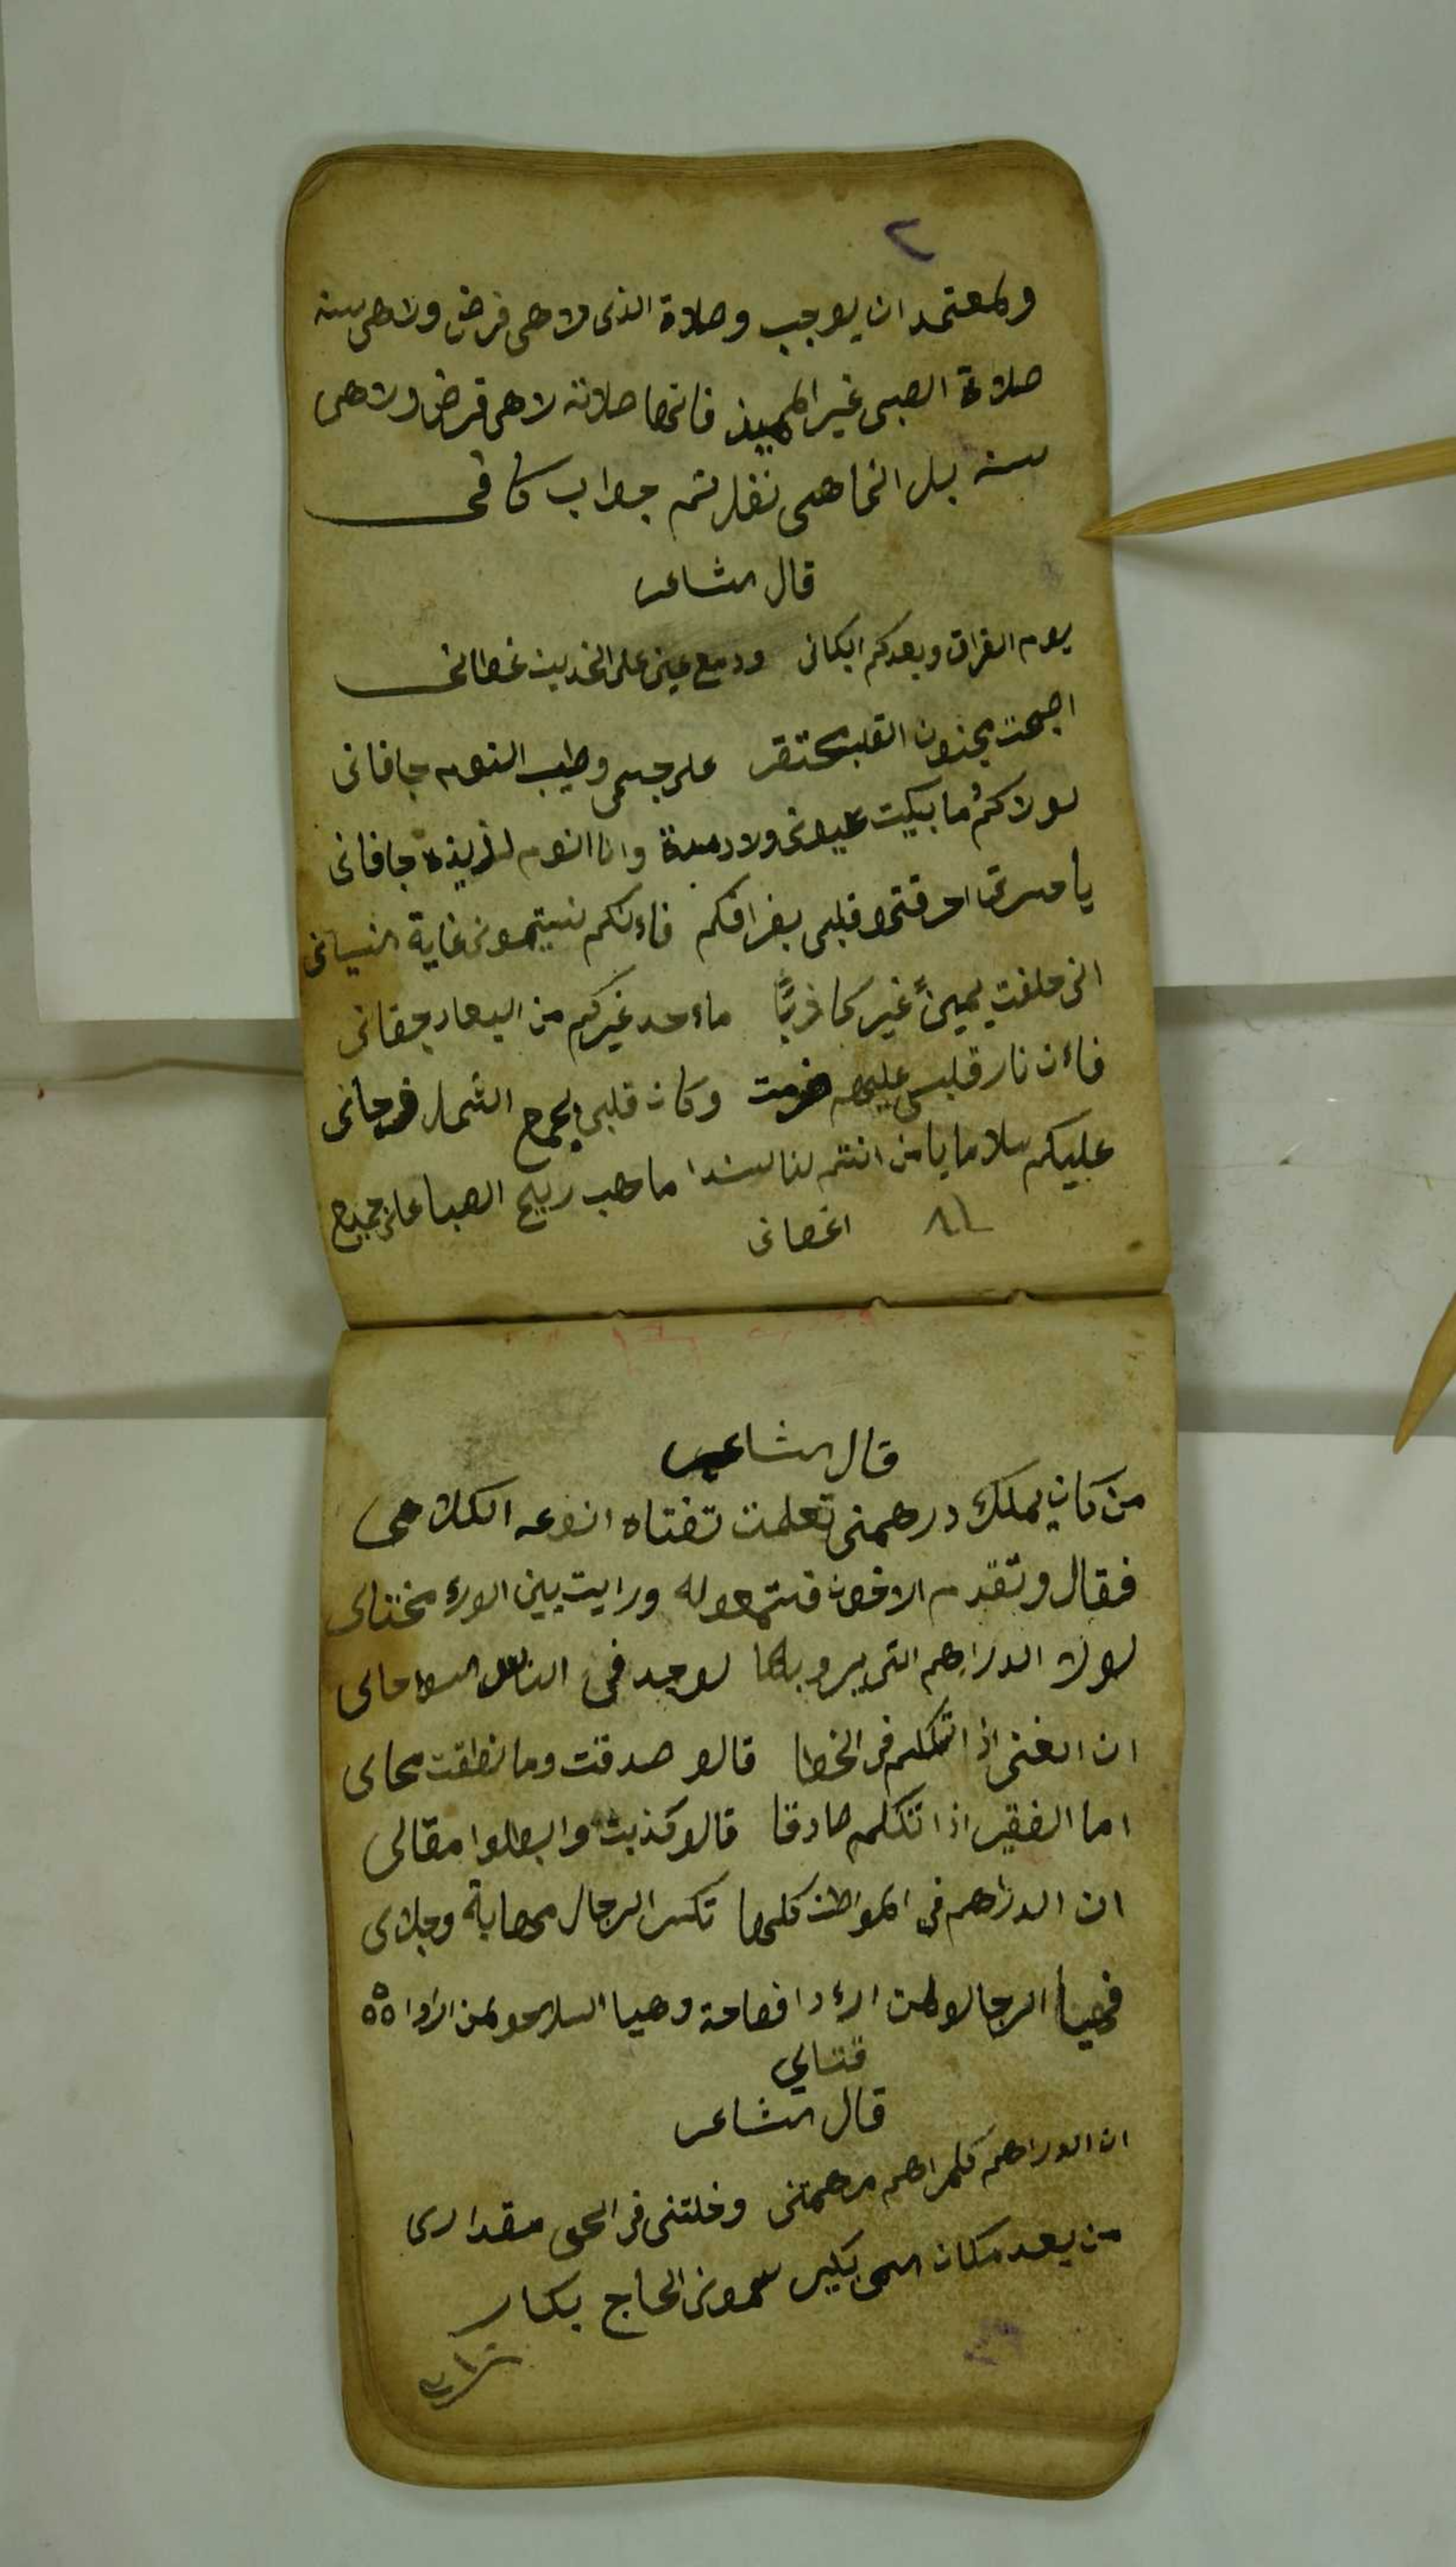 ٢
ولمعتمد ان يوجب وصلاة الذى لاهى فرض ولاهى سنه
صلاة الصبى غير المميز فانها صلاته لاهى فرض ولاهى
سنه بل انما هى نفل تم جواب كافى
قال الشاعر
يوم الفراق وبعدكم ابكانى ودمع عينى على الخدين غطانى
اصبحت مجنون القلب محتقر على جسمى وطيب النوم جافانى
لولاكم ما بيكت عيونى ولا دمعة وانا النوم لذيذه جافانى
يا احرقتموا قلبى بفراقكم فاءنكم نسيتمونى غاية النسيانى
انى حلفت يمينً غير ماء حد غيركم من البعاد جقانى
فاءن نار قلبى عليكم وكان قلبى بجمع الشمل فرحانى
عليكم سلاما يا من انتم لنا سندا ما هب ريح الصبا على جميع
اغصانى ٨١
قال الشاعر
من كان يملك درهمنى تعلمت تفتاه انوعه الكلامى
فقال وتقدم الاخون فستمعوله ورايت بين الورء مختالى
لولا الدراهم التى لوجد فى الناس اسوا حالى
ان الغنى اذا تكلم فى الخطا قالو صدقت وما نطقت محالى
اما الفقير اذا تكلم صادقا قالو كذبت وابطلوا مقالى
ان الدراهم فى المواطن كلها تكسى الرجال مهابة وجلالى
فهيا الرجال ولمن اراد افصاحة وهيا السلاحو لمن ارادا ٥٥٥
قتالي
قال الشاعر
ان الدراهم كلمراهم مرهمتنى وخلتنى فى الحى مقدارى
من بعد مكان اسمى بكير سمونى الحاج بكار